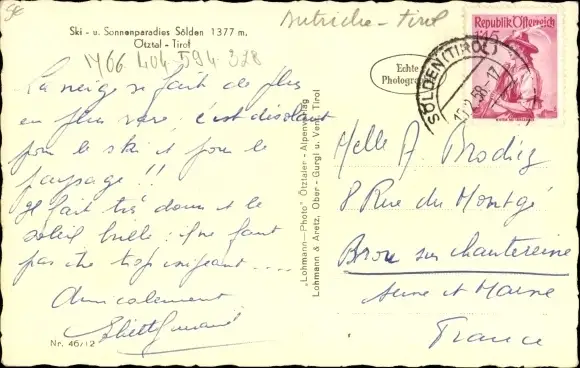 Autriche - Tirol
Ski - u. Sonnenparadies Sölden 1377 m.
Ötztal - Tirol
1706 404 594 328
La neige se fait de plus
en plus rare, c'est désolant
pour le ski et pour le
paysage !!
Il fait très doux et le
soleil brille : il ne faut
pas être trop exigeant ....
Amicalement
Nr. 46/12
"Lohmann-Photo" Ötztaler - Alpenverlag
Lohmann & Aretz, Ober - Gurgl u. Vent, Tirol
Echte
Photographie
Republik Österreich
1.45
SÖLDEN (TIROL)
58-17
Melle A Brodiez
8 Rue du Montgé
Brou sur Chantereine
Seine et Marne
France